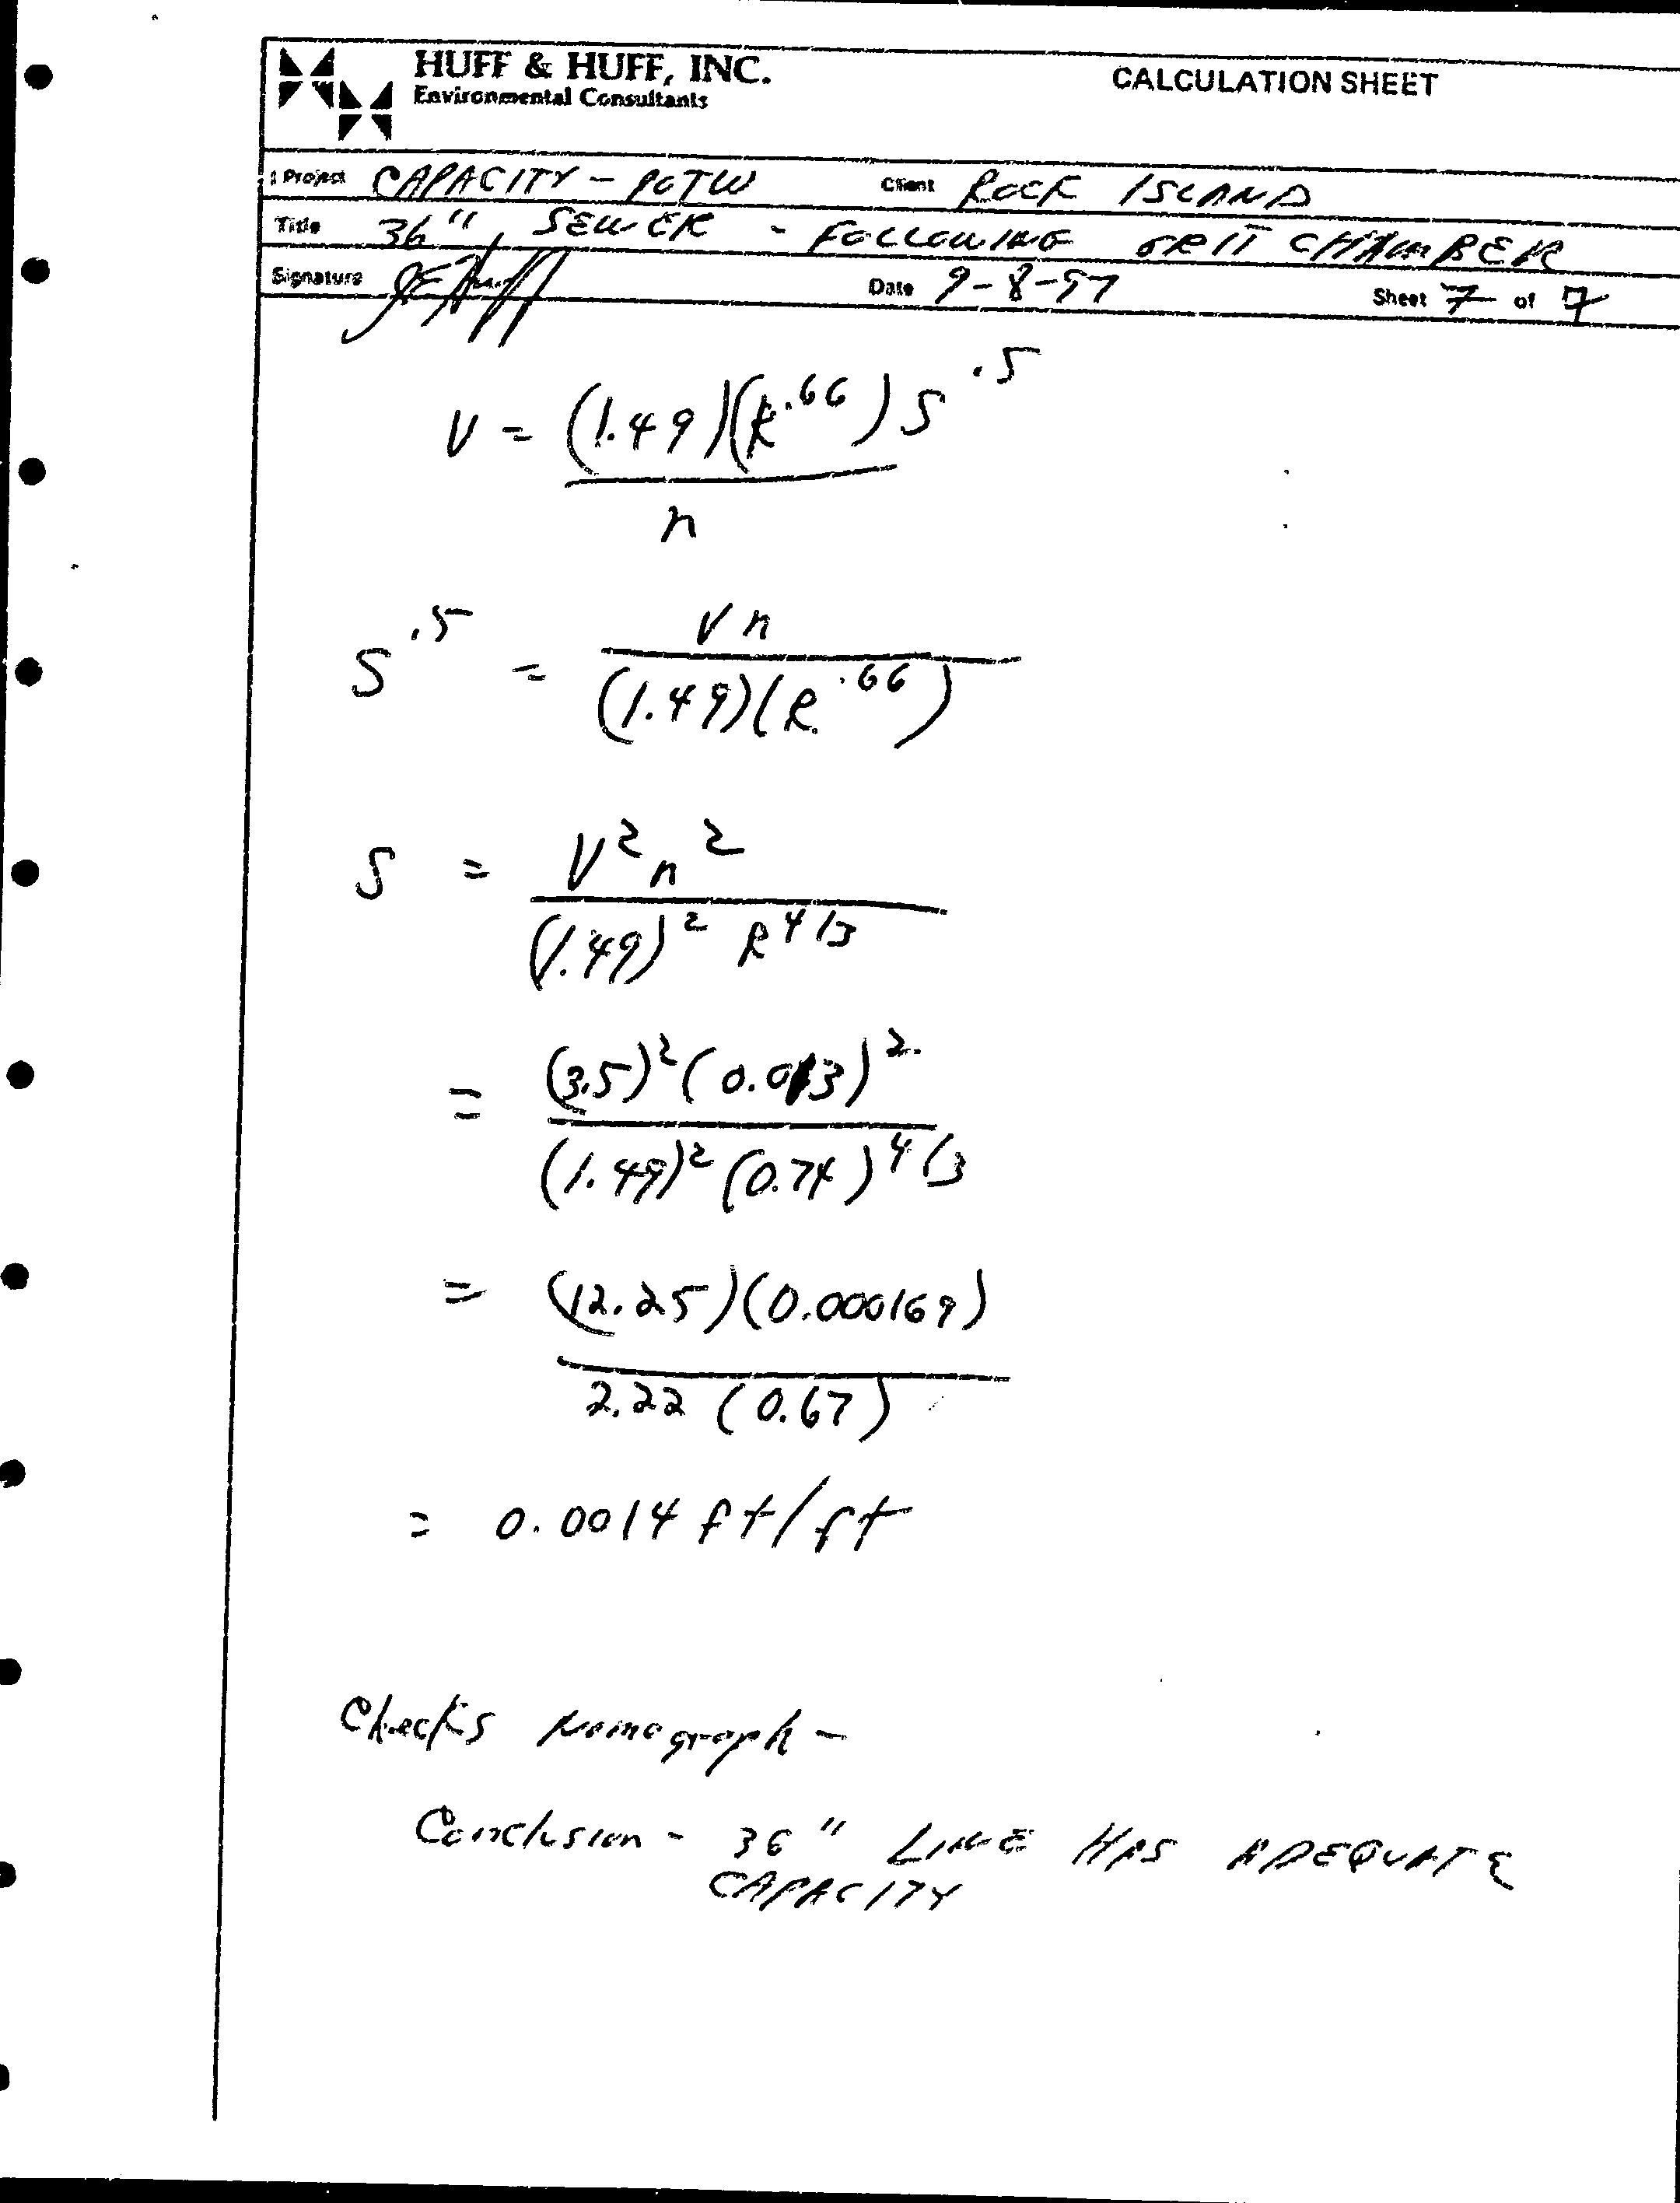 HUFF & HUFF, INC.
Environmental Consultants
CALCULATION SHEET
Project CAPACITY - POTW Client ROCK ISLAND
Title 36" SEWER - FOLLOWING GRIT CHAMBER
Signature Date 9-8-97 Sheet 7 of 7
V = (1.49)(R^.66) S^.5
n
S^.5 = V n
(1.49)(R^.66)
S = V² n²
(1.49)² R^4/3
= (3.5)² (0.013)²
(1.49)² (0.74)^4/3
= (12.25)(0.000169)
2.22 (0.67)
= 0.0014 ft/ft
Checks Nomograph -
Conclusion - 36" LINE HAS ADEQUATE
CAPACITY